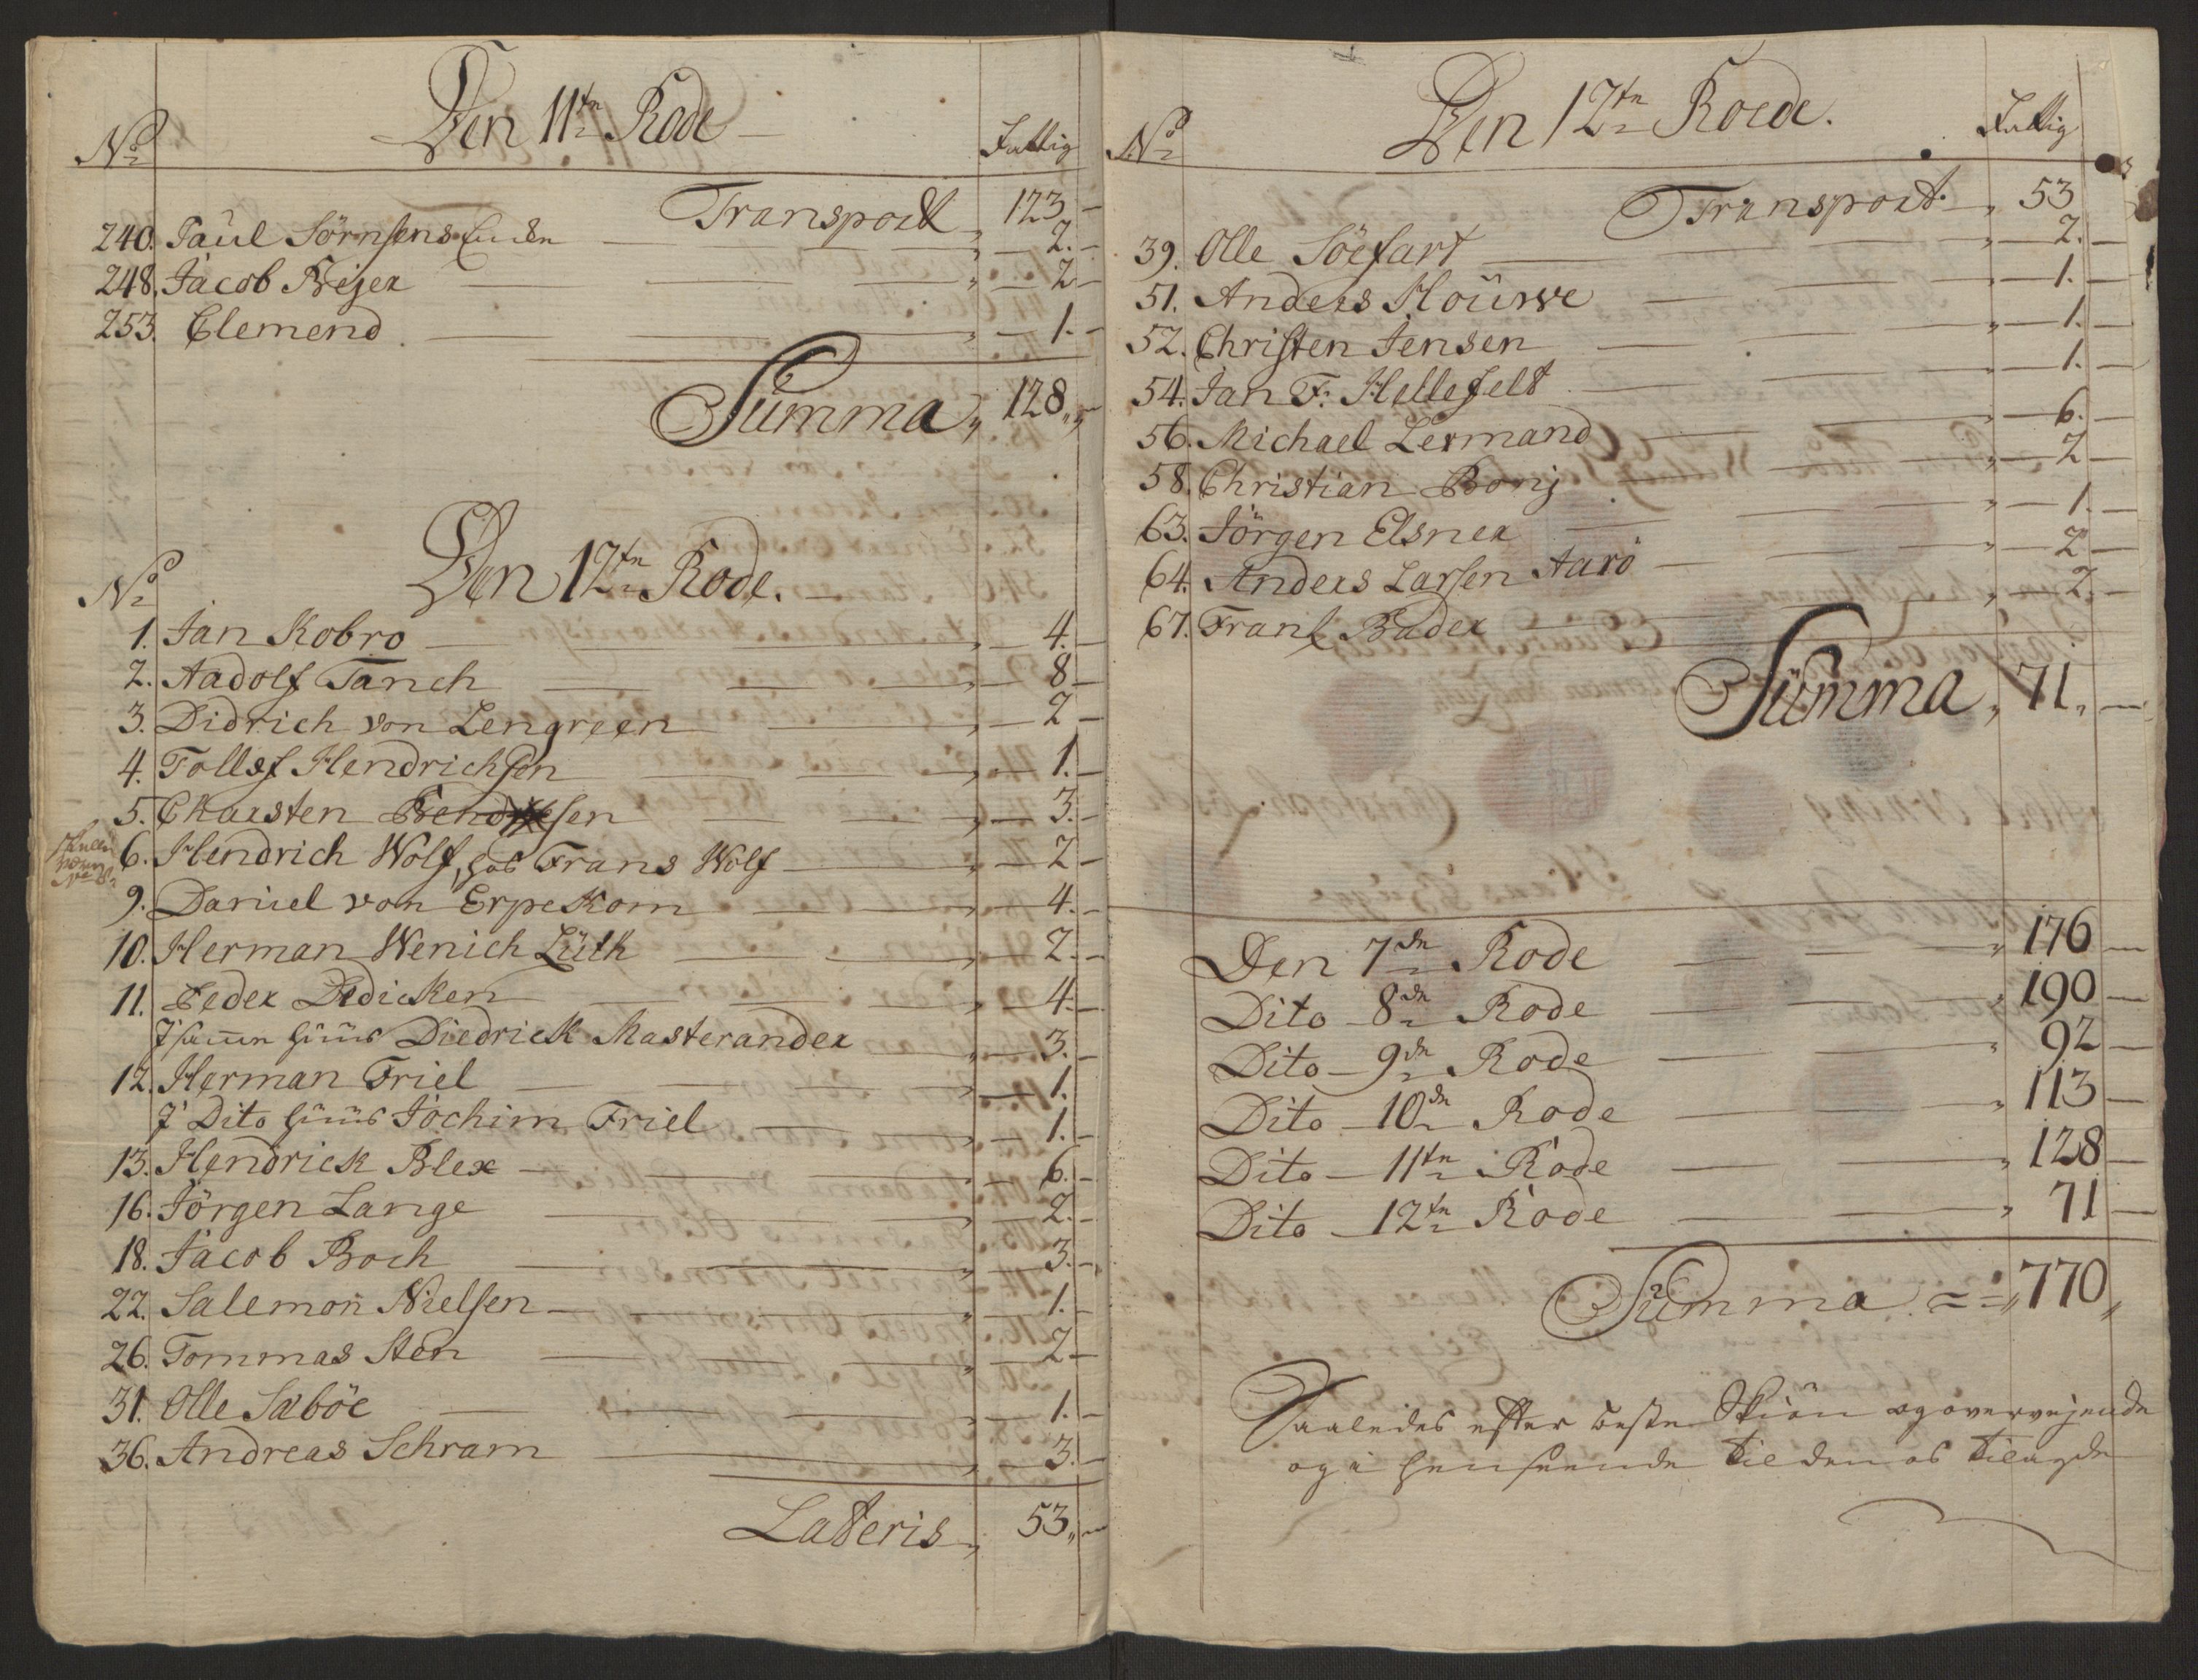 Den 11tn Rode
No
Fattig
Transport 123
240. Paul Sörnsens Encke 2.
248. Jacob Beijer 2
253. Clemend 1.
Summa 128
Den 12tn Rode.
No
1. Jan Kobro 4.
2. Aadolf Tanch 8
3. Didrich von Lengreen 2
4. Tollef Hendrichsen 1.
5. Charsten sen 3.
6. Hendrich Wolf, hos Frans Wolf 2
9. Daniel von Erpekom 4.
10. Herman Wenich Lüth 2.
11. Peder Dedicken 4.
J samme Huus Diedrick Masterander 3.
12. Herman Friel 1.
J Dito Huus Jochim Friel 1.
13. Hendrick Blex 6.
16. Jörgen Lange 2.
18. Jacob Boch 3.
22. Salemon Nielsen 1.
26. Tommas Sten 2
31. Olle Sæböe 1.
36. Andreas Schram 3.
Lateris 53
Den 12tn Roede.
No
Fattig
Transport 53
39. Olle Söefart 2.
51. Anders Houwe 1.
52. Christen Jensen 1.
54. Jan F. Hellefelt 1.
56. Michael Lermand 6.
58. Christian Bonj 2
63. Jörgen Elsner 1.
64. Anders Larsen Aarö 2
67. Frans Bader 2.
Summa 71
Den 7de Rode 176
Dito 8de Rode 190
Dito 9de Rode 92
Dito 10de Rode 113
Dito 11tn Rode 128
Dito 12tn Rode 71
Summa = 770
Saaledes efter beste Skiön og overvejende
og i henseende til den os tilagde